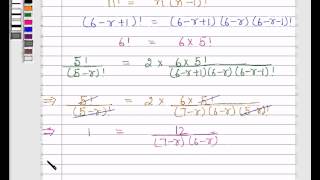 n! = n(n-1)!
(6-r+1)! = (6-r+1)(6-r)(6-r-1)!
6! = 6 × 5!
5!/(5-r)! = 2 × 6 × 5!/(6-r+1)(6-r)(6-r-1)!
⇒ 5!/(5-r)! = 2 × 6 × 5!/(7-r)(6-r)(5-r)!
⇒ 1 = 12/(7-r)(6-r)